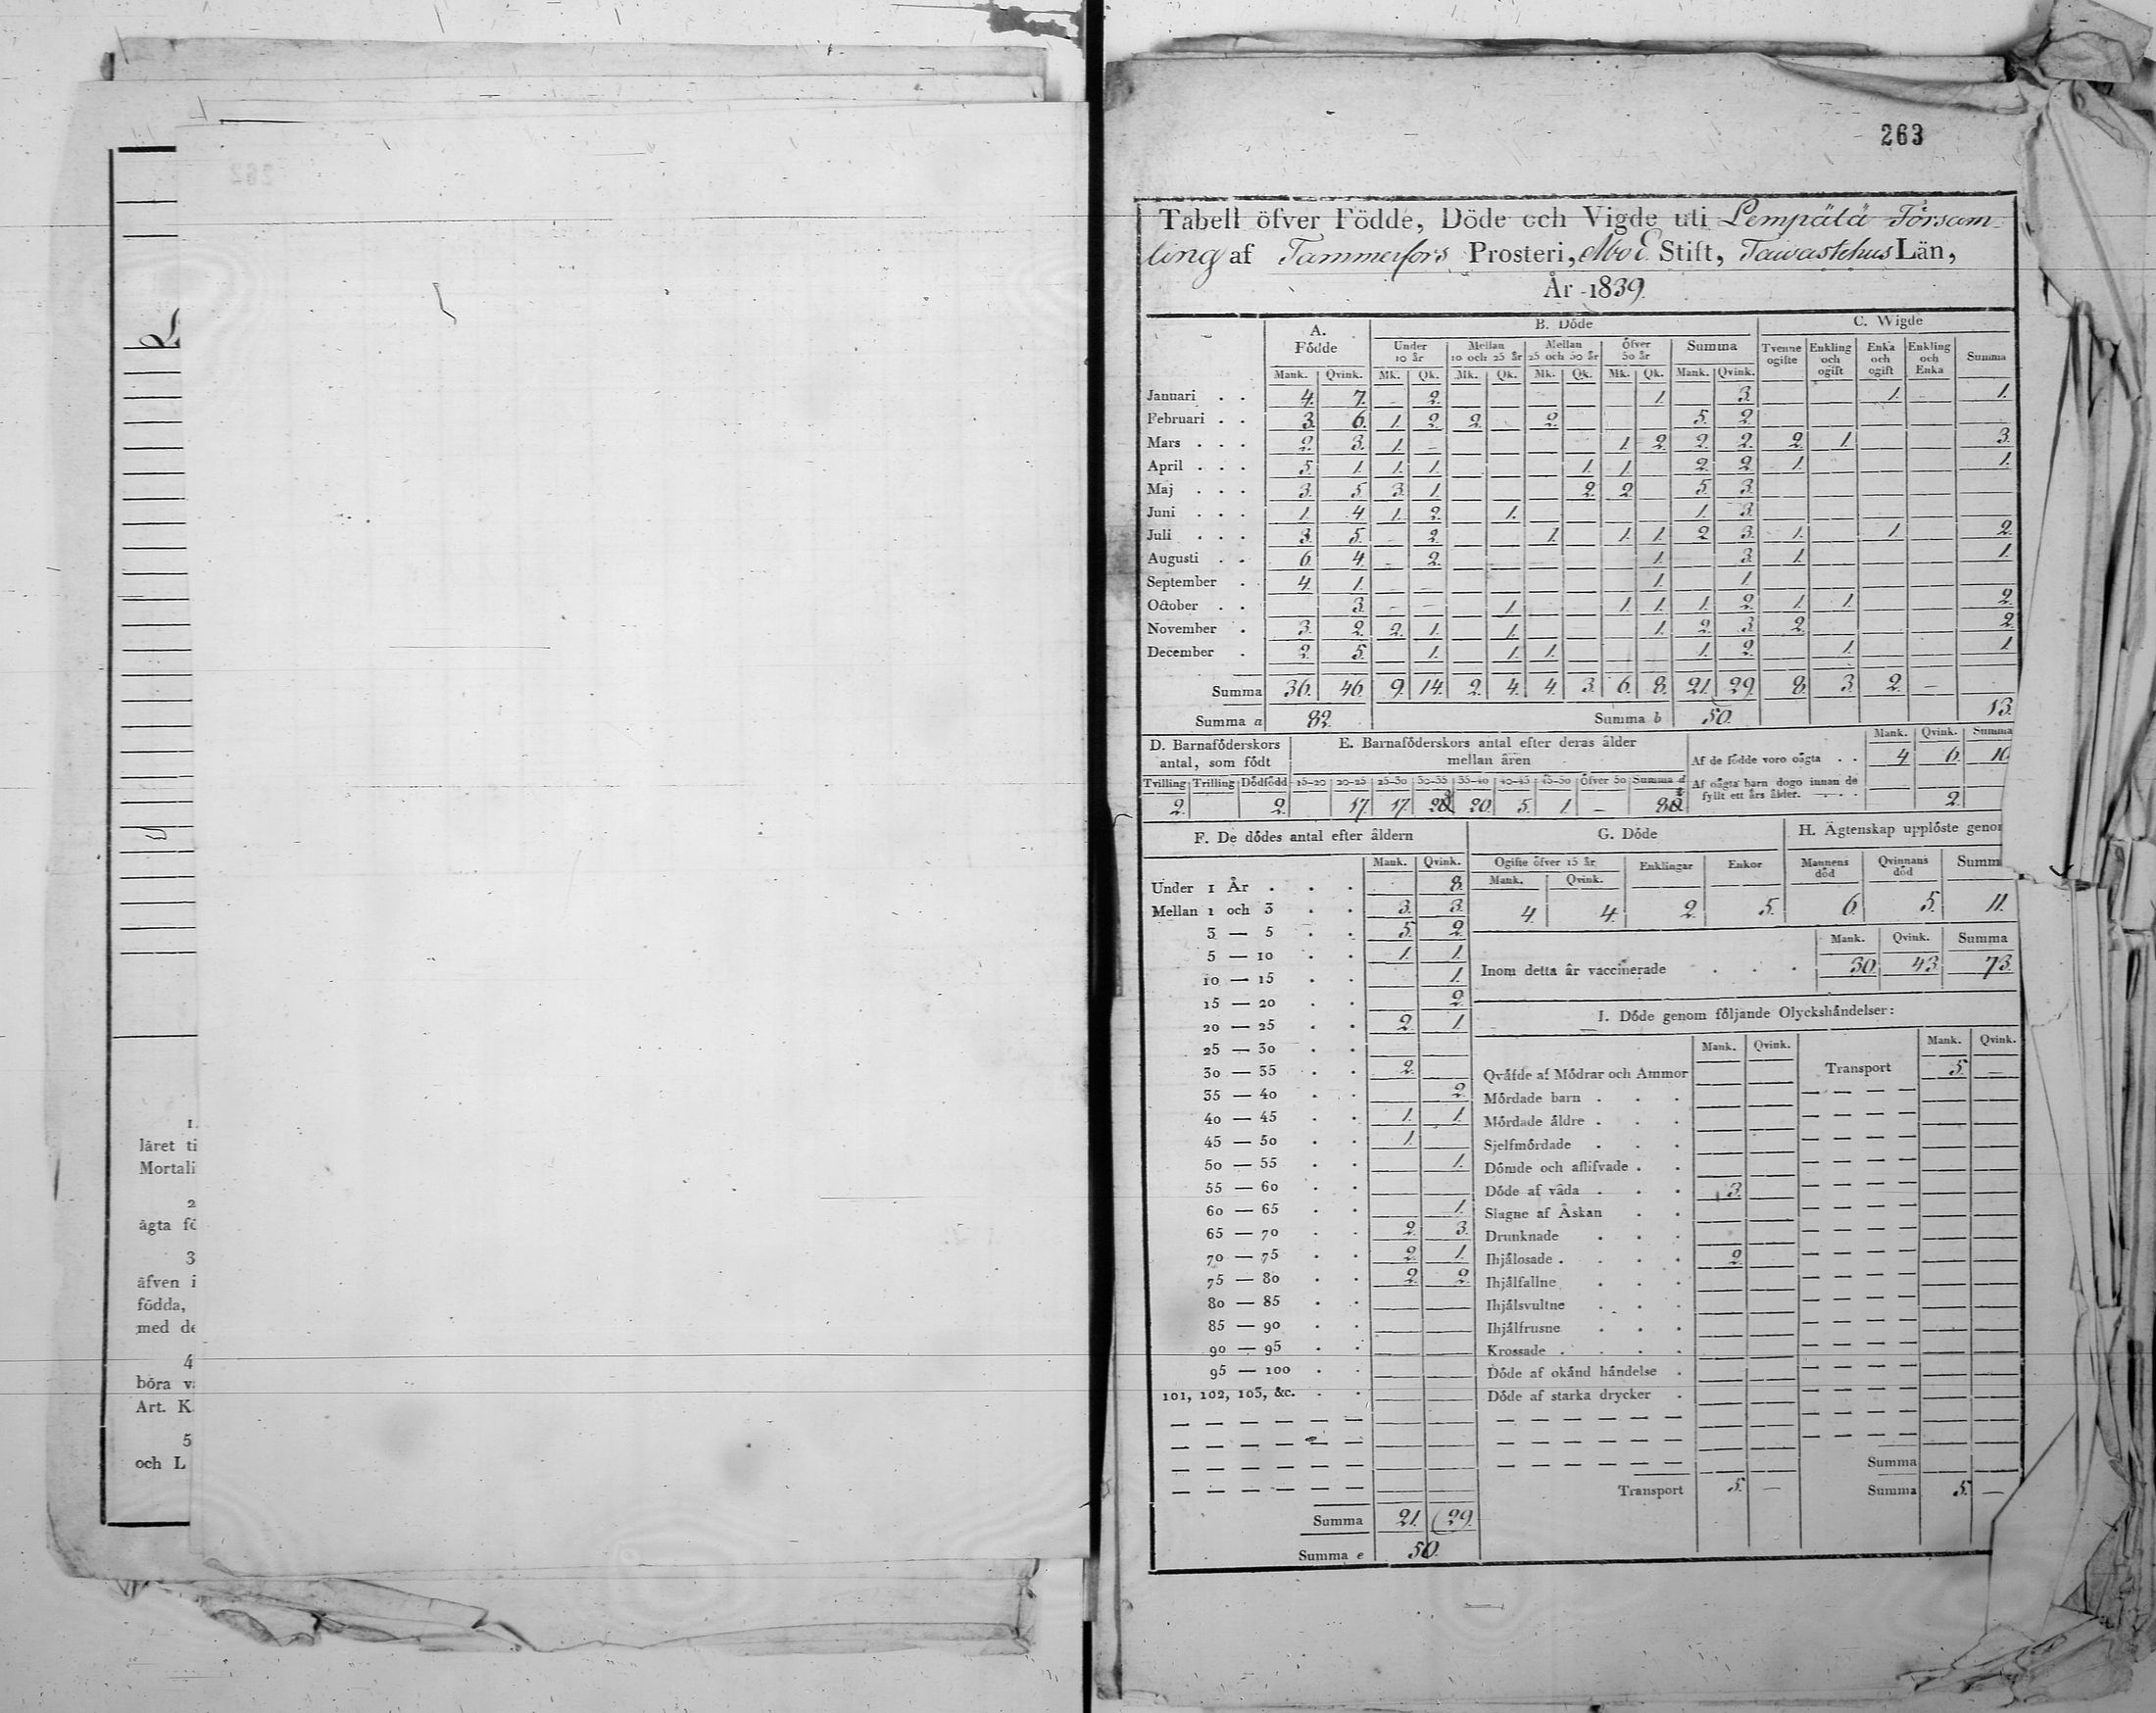 263
Tabell öfver Födde, Döde och Vigde uti Lempälä Församling
af Tammerfors Prosteri, Åbo E. Stift, Tawastehus Län,
År 1839.
A. Födde B. Döde C. Wigde
Under 10 år Mellan 10 och 25 år Mellan 25 och 50 år Öfver 50 år Summa Tvenne ogifte Enkling och ogift Enka och ogift Enkling och Enka Summa
Mank. Qvink. Mk. Qk. Mk. Qk. Mk. Qk. Mk. Qk. Mank. Qvink.
Januari . . 4. 7. - 2. 1. 3. 1. 1.
Februari . . 3. 6. 1. 2. 2. 2. 5. 2.
Mars . . . 2. 3. 1. - 1. 2. 2. 2. 2. 1. 3.
April . . . 5. 1. 1. 1. 1. 1. 2. 2. 1. 1.
Maj . . . 3. 5. 3. 1. 2. 2. 5. 3.
Juni . . . 1. 4. 1. 2. 1. 1. 3.
Juli . . . 3. 5. - 2. 1. 1. 1. 2. 3. 1. 1. 2.
Augusti . . 6. 4. - 2. 1. 3. 1. 1.
September . 4. 1. 1. 1.
October . . 3. - - 1. 1. 1. 1. 2. 1. 1. 2.
November . 3. 2. 2. 1. 1. 1. 2. 3. 2. 2.
December . 2. 5. 1. 1. 1. 1. 2. 1. 1
Summa 36. 46. 9. 14. 2. 4. 4. 3. 6. 8. 21. 29. 8. 3. 2. -
Summa a 82. Summa b 50. 13.
D. Barnaföderskors antal, som födt
E. Barnaföderskors antal efter deras ålder mellan åren
Tvilling Trilling Dödfödd 15-20 20-25 25-30 30-35 35-40 40-45 45-50 Öfver 50 Summa d
2. 2. 17. 17. 20. 5. 1. -
Mank. Qvink. Summa
Af de födde voro oägta . . 4 6. 10
Af oägta barn dogo innan de fyllt ett års ålder. 2.
F. De dödes antal efter åldern
Mank. Qvink.
Under 1 År . . . 8.
Mellan 1 och 3 . . 3. 3.
3 — 5 . . 5. 2.
5 — 10 . . 1. 1.
10 — 15 . . 1.
15 — 20 . . 2.
20 — 25 . . 2. 1.
25 — 30 . .
30 — 35 . . 2.
35 — 40 . . 2.
40 — 45 . . 1. 1.
45 — 50 . . 1.
50 — 55 . . 1.
55 — 60 . .
60 — 65 . . 1.
65 — 70 . . 2. 3.
70 — 75 . . 2. 1.
75 — 80 . . 2. 2.
80 — 85 . .
85 — 90 . .
90 — 95 . .
95 — 100 . .
101, 102, 103, &c. . .
Summa 21. 29.
Summa e 50.
G. Döde
Ogifte öfver 15 år Enklingar Enkor
Mank. Qvink.
4. 4. 2. 5.
H. Ägtenskap upplöste genom
Mannens död Qvinnans död Summ
6. 5. 11.
Mank. Qvink. Summa
Inom detta år vaccinerade . . . 30. 43. 73.
I. Döde genom följande Olyckshändelser:
Mank. Qvink. Mank. Qvink.
Qväfde af Mödrar och Ammor Transport 5. —
Mördade barn . . .
Mördade äldre . . .
Sjelfmördade . . .
Dömde och aflifvade . .
Döde af våda . . . 3.
Slagne af Åskan . .
Drunknade . . .
Ihjälosade . . . . 2.
Ihjälfallne . . .
Ihjälsvultne . . .
Ihjälfrusne . . .
Krossade . . . .
Döde af okänd händelse .
Döde af starka drycker .
Summa
Transport 5. — Summa 5. —
1.
läret ti
Mortali
2
ägta fö
3
äfven i
födda,
med de
4
böra v
Art. K
5
och L